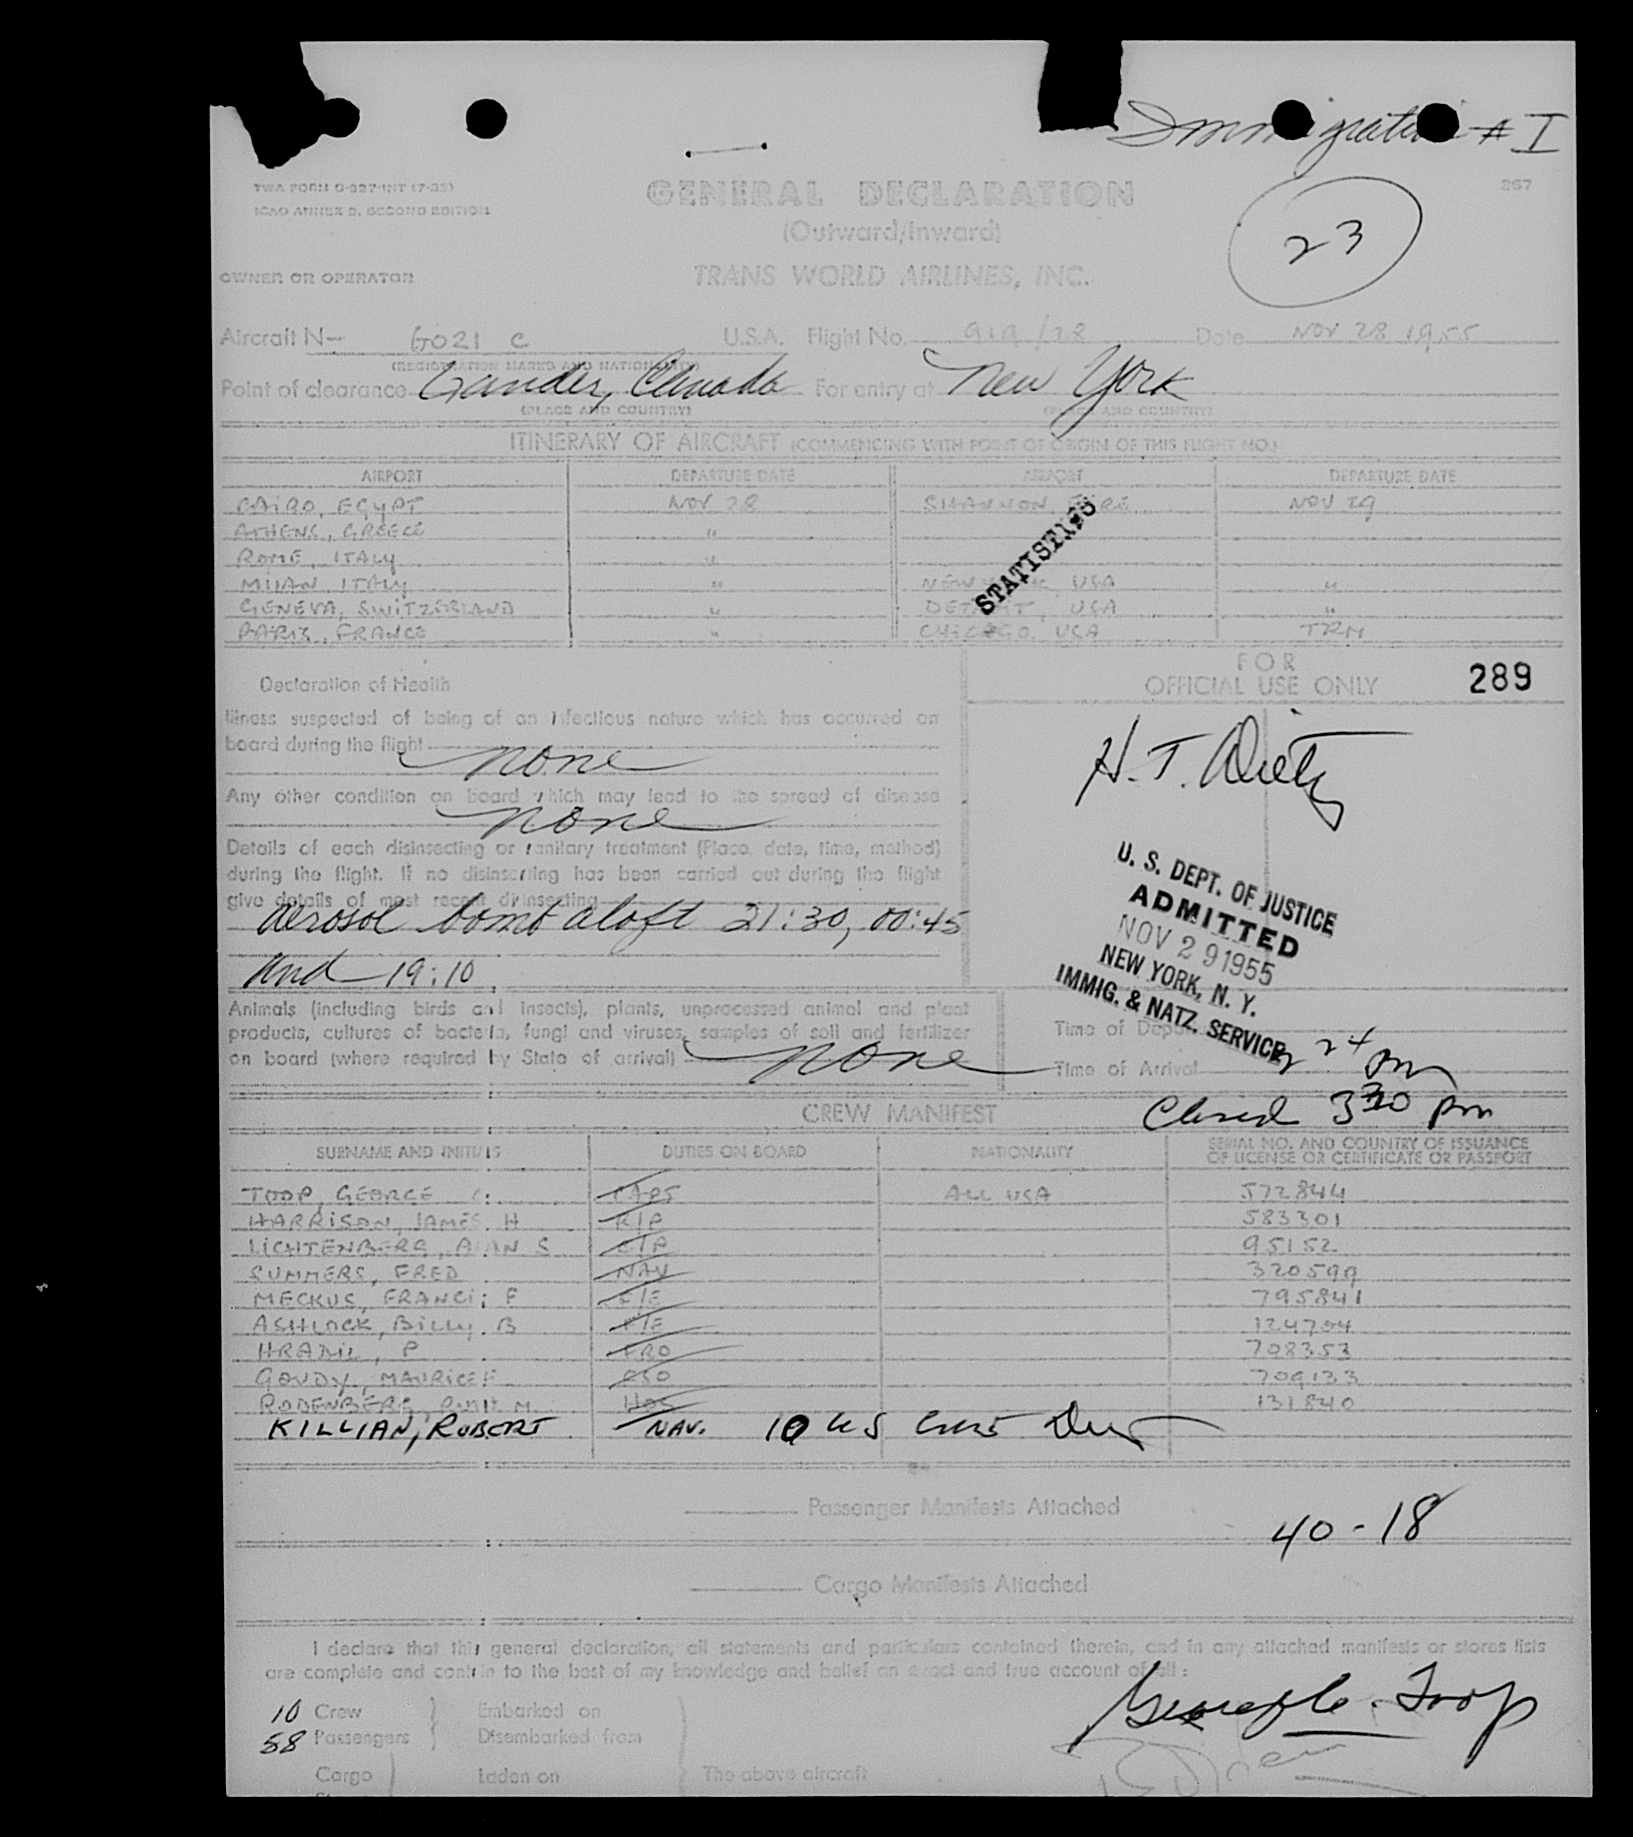 Immigration # I
TWA FORM O-927-INT (7-55)
ICAO ANNEX 9, SECOND EDITION
GENERAL DECLARATION
267
(Outward/Inward)
23
OWNER OR OPERATOR
TRANS WORLD AIRLINES, INC.
Aircraft N- 6021 C U.S.A. Flight No. 919/28 Date NOV 28 1955
(REGISTRATION MARKS AND NATIONALITY)
Point of clearance Gander, Canada For entry at New York
(PLACE AND COUNTRY) (PLACE AND COUNTRY)
ITINERARY OF AIRCRAFT (COMMENCING WITH POINT OF ORIGIN OF THIS FLIGHT NO.)
AIRPORT DEPARTURE DATE AIRPORT DEPARTURE DATE
CAIRO, EGYPT NOV 28 SHANNON EIRE NOV 29
ATHENS, GREECE "
ROME, ITALY "
MILAN, ITALY " NEW YORK, USA "
GENEVA, SWITZERLAND " DETROIT, USA "
PARIS, FRANCE " CHICAGO, USA TRM
STATISTICS
FOR
OFFICIAL USE ONLY 289
Declaration of Health
Illness suspected of being of an infectious nature which has occurred on
board during the flight
none
Any other condition on board which may lead to the spread of disease
none
Details of each disinsecting or sanitary treatment (Place, date, time, method)
during the flight. If no disinsecting has been carried out during the flight
give details of most recent disinsecting
Aerosol bomb aloft 21:30, 00:45
And 19:10
H. T. Dietz
U. S. DEPT. OF JUSTICE
ADMITTED
NOV 29 1955
NEW YORK, N. Y.
IMMIG. & NATZ. SERVICE
Animals (including birds and insects), plants, unprocessed animal and plant
products, cultures of bacteria, fungi and viruses, samples of soil and fertilizer
on board (where required by State of arrival) none
Time of
Time of Arrival 2 24 pm
Closed 3 30 pm
CREW MANIFEST
SURNAME AND INITIALS DUTIES ON BOARD NATIONALITY SERIAL NO. AND COUNTRY OF ISSUANCE
OF LICENSE OR CERTIFICATE OR PASSPORT
TOOP, GEORGE C. CAPT ALL USA 572844
HARRISON, JAMES H 583301
LICHTENBERG, ALAN S 95152
SUMMERS, FRED NAV 320599
MECKUS, FRANCIS F F/E 795841
ASHLOCK, BILLY B F/E 124704
HRADIL, P FRO 708353
GOUDY, MAURICE F 709133
RODENBERG, M. HOS 131840
KILLIAN, ROBERT NAV. 10 US
Passenger Manifests Attached
40-18
Cargo Manifests Attached
I declare that this general declaration, all statements and particulars contained therein, and in any attached manifests or stores lists
are complete and contain to the best of my knowledge and belief an exact and true account of all:
10 Crew Embarked on
58 Passengers Disembarked from
Cargo Laden on The above aircraft
George C. Toop